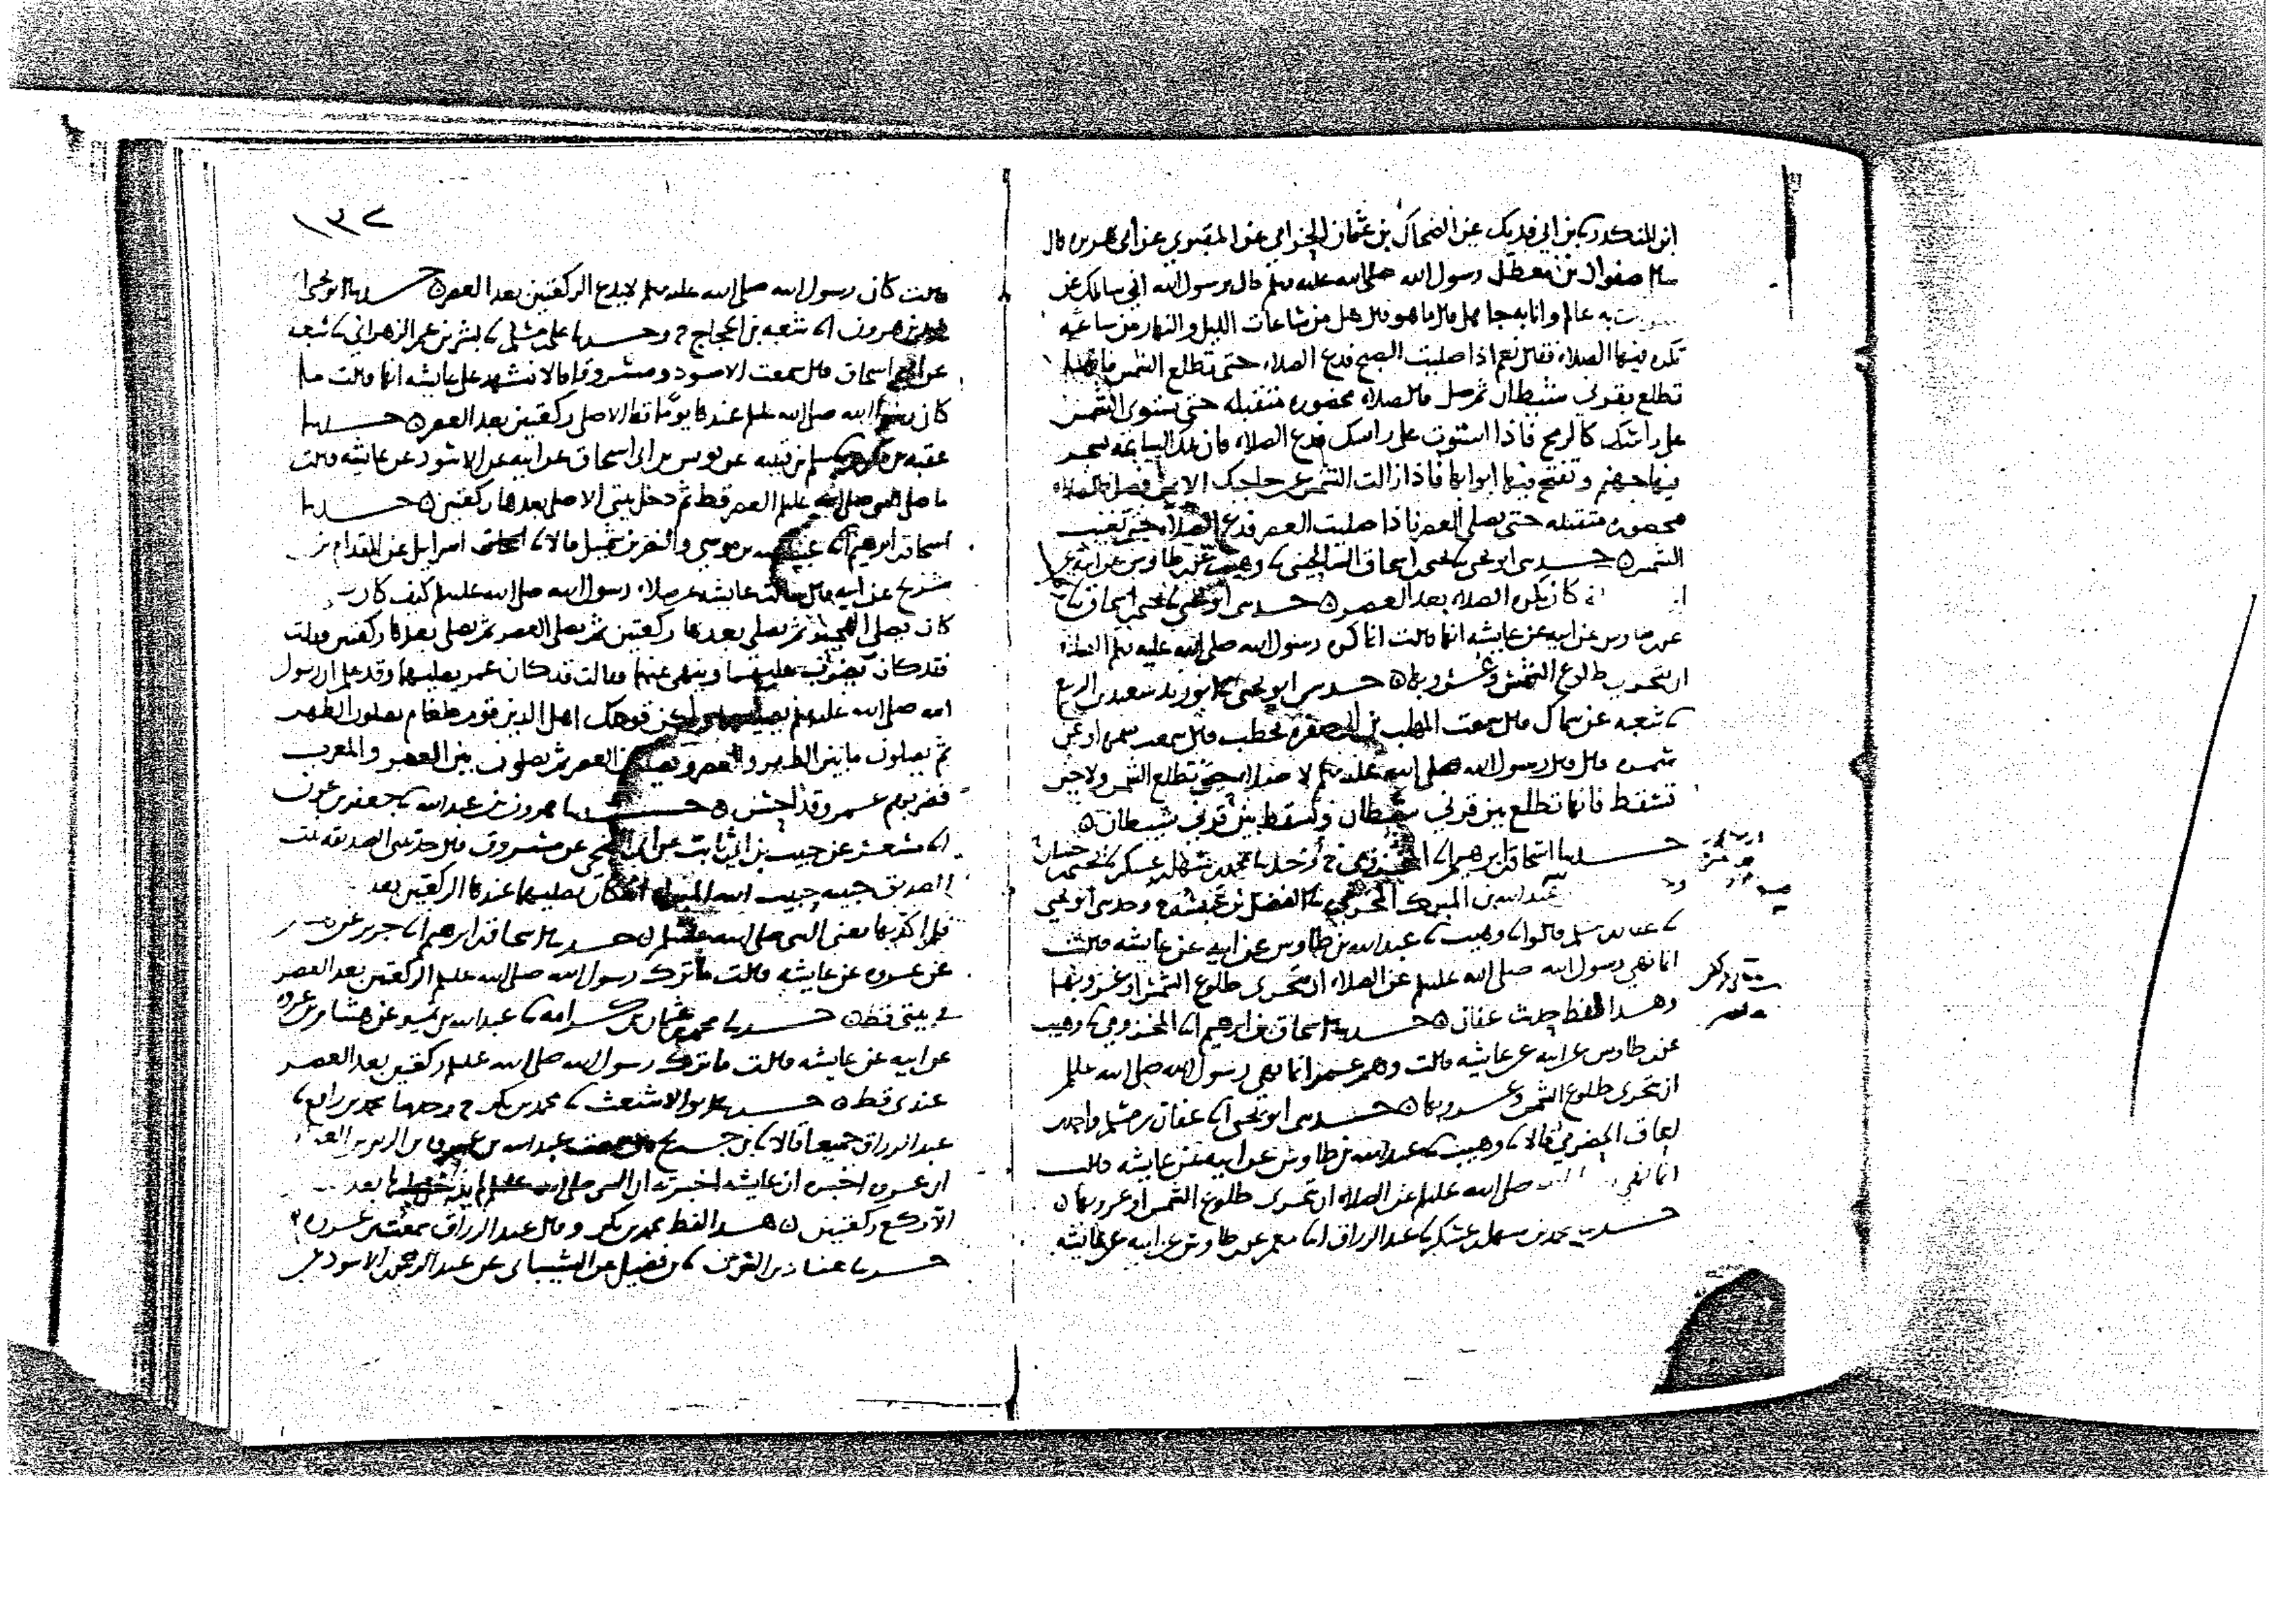 ابن المنكدر نا بن ابي فديك عن الضحاك بن عثمان الحزامي عن المقبري عن ابي هريره قال
سال صفوان بن معطل رسول الله صلى الله عليه وسلم قال يرسول الله اني سايلك عن
به عالم وانا به جاهل قال ما هو قال هل من ساعات الليل والنهار من ساعه
تكره فيها الصلاه فقال نعم اذا صليت الصبح فدع الصلاه حتى تطلع الشمس فانها
تطلع بقرني شيطان ثم صل فالصلاه محضوره متقبله حتى تستوى الشمس
على راسك كالرمح فاذا استوت على راسك فدع الصلاه فان تلك الساعه تسجر
فيها جهنم وتفتح فيها ابوابها فاذا زالت الشمس عن حاجبك الايمن فصل فالصلاه
محضوره متقبله حتى يصلى العصر فاذا صليت العصر فدع الصلاه حتى تغيب
الشمس ه حدثنى ابو يحيى نا يحيى بن اسحاق السالحيني نا وهيب عن بن طاوس عن ابيه
كان يكره الصلاه بعد العصر ه حدثنى ابو يحيى نا يحيى بن اسحاق نا
عن بن طاوس عن ابيه عن عايشه انها قالت انما كره رسول الله صلى الله عليه وسلم الصلاه
ان يتحرى بها طلوع الشمس وغروبها ه حدثنى ابو يحيى نا ابو زيد سعيد بن الربيع
نا شعبه عن سماك قال سمعت المهلب بن ابي صفره يخطب قال سمعت سمره او عن
سمره قال قال رسول الله صلى الله عليه وسلم لا صلاه حتى تطلع الشمس ولا حين
تسقط فانها تطلع بين قرني شيطان وتسقط بين قرني شيطان ه
حدثنا اسحاق بن ابرهيم انا المخزومي ح وحدثنا محمد بن سهل بن عسكر نا يحيى بن حسان
عبد الله بن المبرك المخرمي نا الفضل بن عنبسه ح وحدثنى ابو يحيى
نا عفان بن مسلم قالوا نا وهيب نا عبد الله بن طاوس عن ابيه عن عايشه قالت
انما نهى رسول الله صلى الله عليه وسلم عن الصلاه ان يتحرى طلوع الشمس او غروبها
وهذا لفظ حديث عفان ه حدثنا اسحاق بن ابرهيم انا المخزومي نا وهيب
عن بن طاوس عن ابيه عن عايشه قالت وهم عمر انما نهى رسول الله صلى الله عليه وسلم
ان يتحرى طلوع الشمس وغروبها ه حدثنى ابو يحيى انا عفان بن مسلم واحمد بن
اسحاق الحضرمي قالا نا وهيب نا عبد الله بن طاوس عن ابيه عن عايشه قالت
انما نهى صلى الله عليه وسلم عن الصلاه ان يتحرى طلوع الشمس او غروبها ه
حدثنا محمد بن سهل بن عسكر نا عبد الرزاق انا معمر عن بن طاوس عن ابيه عن عايشه
١٣٧
قالت كان رسول الله صلى الله عليه وسلم لا يدع الركعتين بعد العصر ه حدثنا ابو يحيى انا
يزيد بن هرون انا شعبه بن الحجاج ح وحدثنا على بن مسلم نا بشر بن عمر الزهراني نا شعبه
عن ابي اسحاق قال سمعت الاسود ومسروقا قالا نشهد على عايشه انها قالت ما
كان رسول الله صلى الله عليه وسلم عندي يوما قط الا صلى ركعتين بعد العصر ه حدثنا
عقبه بن مكرم نا سلم بن قتيبه عن يونس بن ابي اسحاق عن ابيه عن الاسود عن عايشه قالت
ما صلى النبي صلى الله عليه وسلم العصر قط ثم دخل بيتى الا صلى بعدها ركعتين ه حدثنا
اسحاق بن ابرهيم انا عبيد الله بن موسى والنضر بن شميل قالا نا اسرايل عن المقدام بن
شريح عن ابيه قال سالت عايشه عن صلاه رسول الله صلى الله عليه وسلم كيف كان
كان يصلى الهجير ثم يصلى بعدها ركعتين ثم يصلى العصر ثم يصلى بعدها ركعتين فقلت
فقد كان عمر يضرب عليهما وينهى عنهما فقالت قد كان عمر يصليهما وقد علم ان رسول
الله صلى الله عليه وسلم يصليهما ولكن قومك اهل الدين قوم طغام يصلون الظهر
ثم يصلون ما بين الظهر والعصر ويصلون العصر ثم يصلون بين العصر والمغرب
فضربهم عمر وقد احسن ه حدثنا هرون بن عبد الله نا جعفر بن عون
انا مسعر عن حبيب بن ابي ثابت عن ابي الضحى عن مسروق قال حدثتنى الصديقه بنت
الصديق حبيبه حبيب الله المبراه انه كان يصليها عندها الركعتين بعد
فلم اكذبها يعنى النبي صلى الله عليه وسلم ه حدثنا اسحاق بن ابرهيم انا جرير عن هشام
عن عروه عن عايشه قالت ما ترك رسول الله صلى الله عليه وسلم الركعتين بعد العصر
في بيتي قط ه حدثنا محمد بن عثمان بن كرامه نا عبد الله بن نمير عن هشام بن عروه
عن ابيه عن عايشه قالت ما ترك رسول الله صلى الله عليه وسلم ركعتين بعد العصر
عندى قط ه حدثنا ابو الاشعث نا محمد بن بكر ح وحدثنا محمد بن رافع نا
عبد الرزاق جميعا قالا نا بن جريج قال سمعت عبد الله بن عروه بن الزبير
ان عروه اخبره ان عايشه اخبرته ان النبي صلى الله عليه وسلم لم يدخل عليها بعد
الا ركع ركعتين ه هذا لفظ محمد بن بكر وقال عبد الرزاق سمعت عروه
حدثنا هناد بن السري نا بن فضيل عن الشيباني عن عبد الرحمن بن الاسود عن